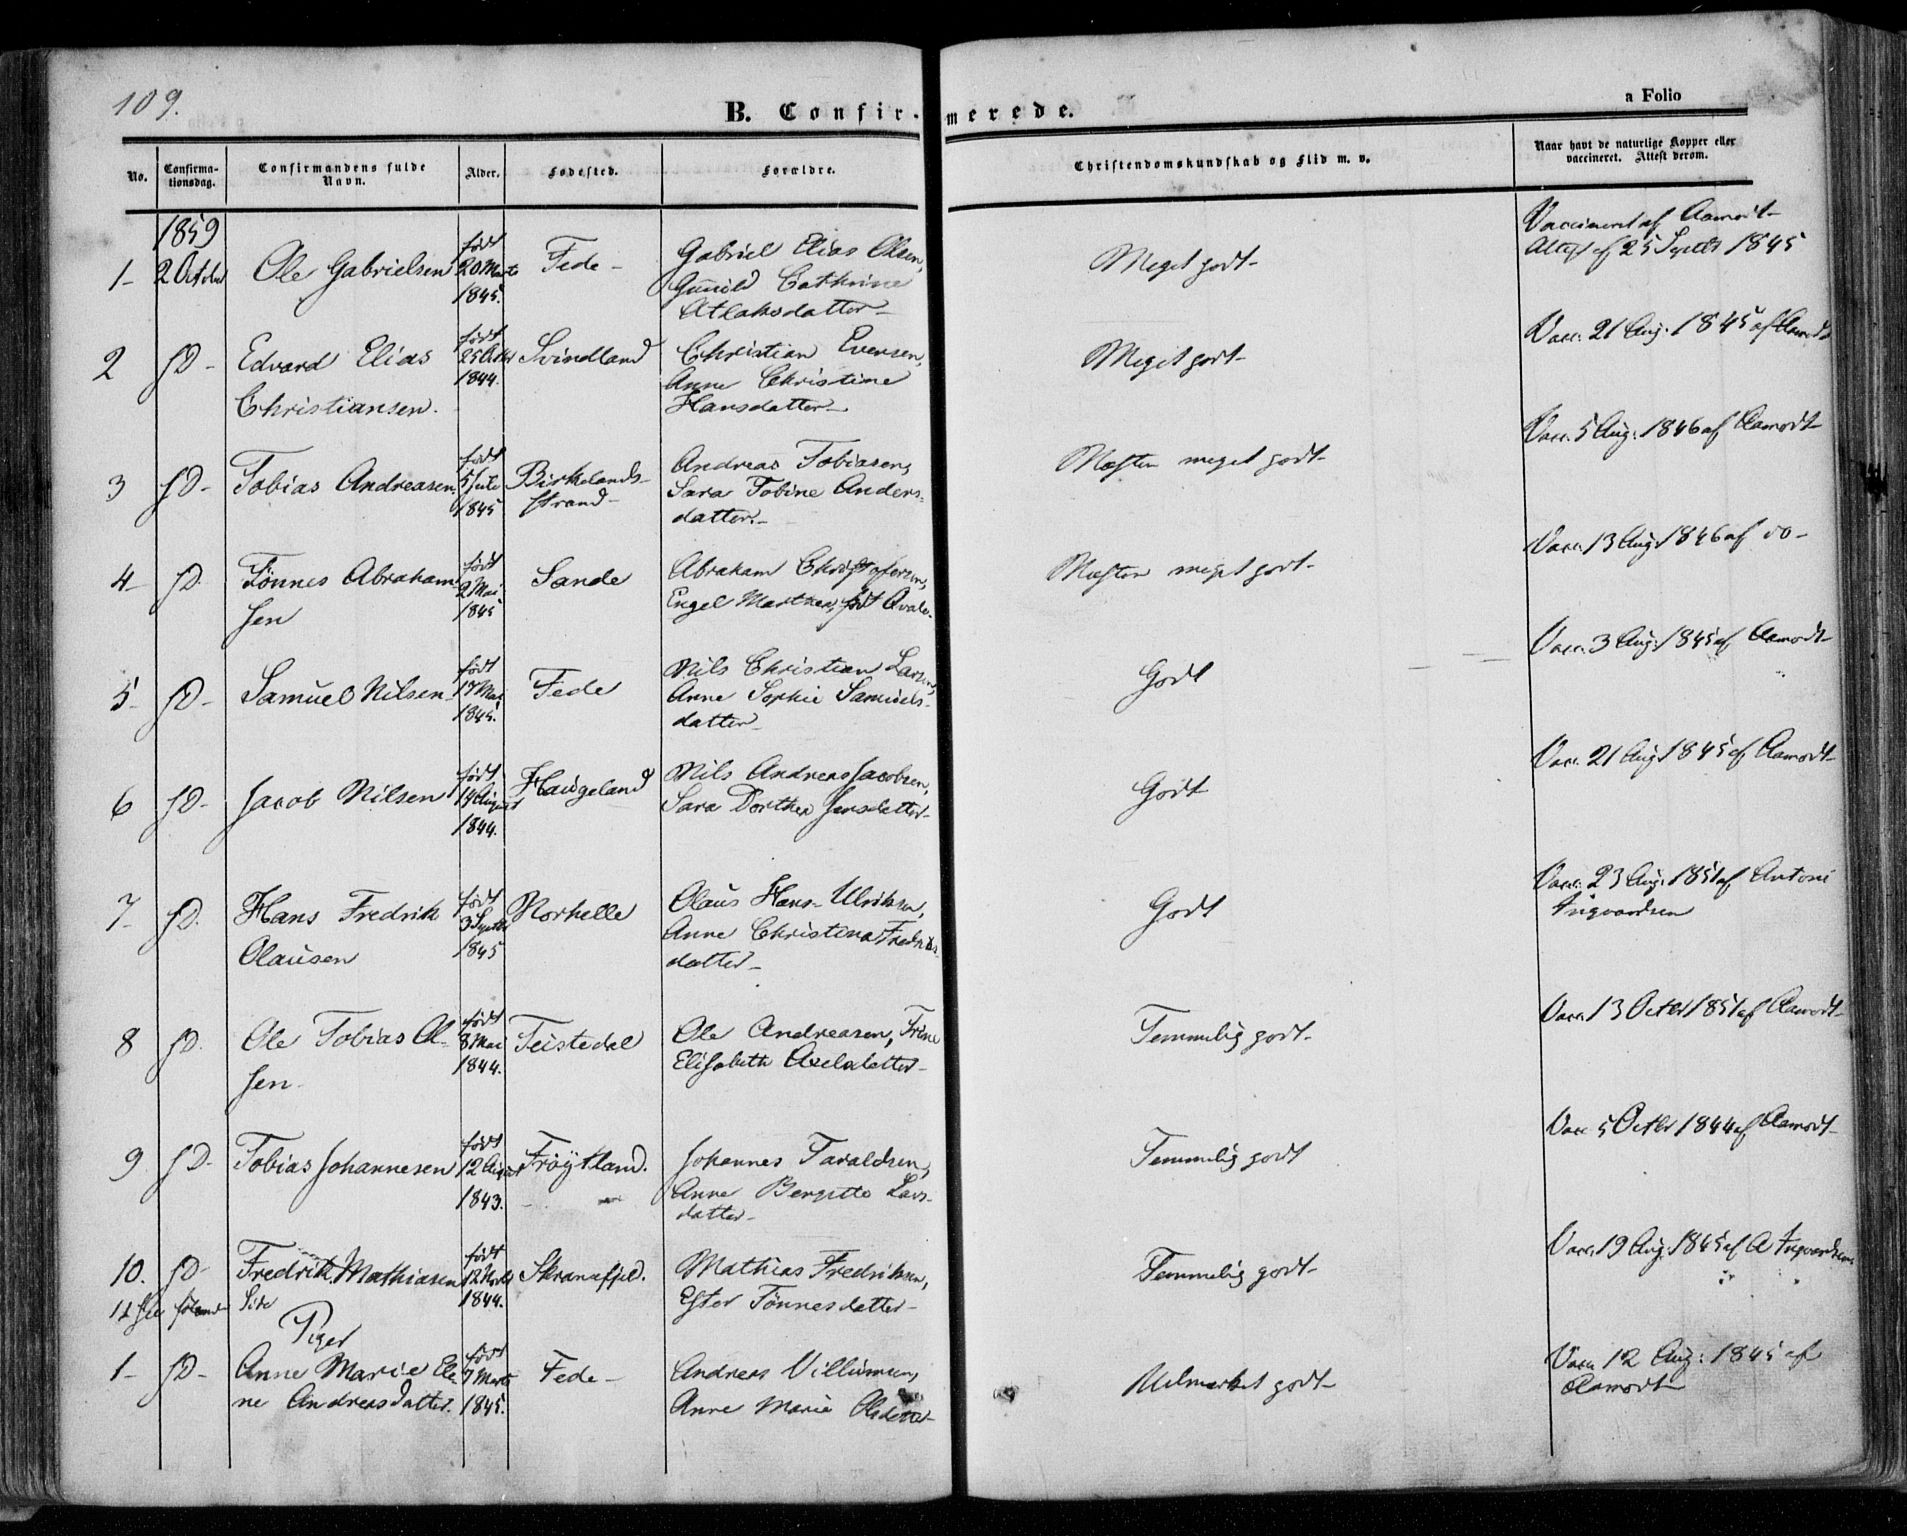 109.
B. Confirmerede.
a Folio
No. Confirmationsdag. Confirmandens fulde Navn. Alder. Fødested. Forældre. Christendomskundskab og Flid m. v. Naar havt de naturlige Kopper eller vaccineret. Attest derom.
1859
1- 2 October Ole Gabrielsen født 20 Marts 1845. Fede- Gabriel Elias Olsen, Gunild Cathrine Atlaksdatter- Meget godt- Vaccineret af Aamodt Attest af 25 Septbr 1845
2 sD- Edvard Elias Christiansen. født 25 1844. Svindland Christian Evensen, Anne Christine Hansdatter- Meget godt- Vacc. 21 Aug. 1845 af Aamodt
3 sD- Tobias Andreasen. født 5 Juli 1845 Birkelandsstrand- Andreas Tobiasen, Sara Tobine Andersdatter.- Næsten meget godt- Vacc. 5 Aug. 1846 af Aamodt-
4- sD. Tønnes Abrahamsen født 2 Mai 1845 Sande Abraham Christofersen, Engel Marthea, født Qvale. Næsten meget godt- Vacc. 13 Aug. 1846 af do-
5- sD- Samuel Nilsen- født 17 Mai 1845. Fede Nils Christian Larsen, Anne Sophie Samuelsdatter- Godt Vacc. 3 Aug. 1845 af Aamodt-
6 sD- Jacob Nilsen født 14 August 1844. Haugeland Nils Andreas Jacobsen, Sara Dorthea Jensdatter- Godt Vacc. 21 Aug. 1845 af Aamodt-
7- sD. Hans Fredrik Olausen født 3 Septbr 1845 Norhelle Olaus Hans- Ulriksen, Anne Christina Fredriksdatter- Godt Vacc. 23 Aug. 1851 af Antoni Ingvardsen
8 sD. Ole Tobias Olsen- født 8 Mai 1844. Teistedal Ole Andreasen, Trine Elisabeth Axelsdatter- Temmelig godt- Vacc. 13 Octbr 1851 af Aamodt-
9 sD- Tobias Johannesen født 12 August 1843. Frøytland. Johannes Taraldsen, Anne Bergitte Larsdatter- Temmelig godt Vacc 5 Octbr 1844 af Aamodt-
10. sD- Fredrik Mathiasen født 12 1844. Skranefjeld. Mathias Fredriksen, Ester Tønnesdatter- Temmelig godt- Vacc. 19 Aug. 1845 af A Ingvardsen
Side
Piger
1- sD- Anne Marie Elene Andreasdatter. født 7 Marts 1845. Fede- Andreas Villumsen, Anne Marie Olsdatter- Udmerket godt- Vacc. 12 Aug. 1845 af Aamodt-